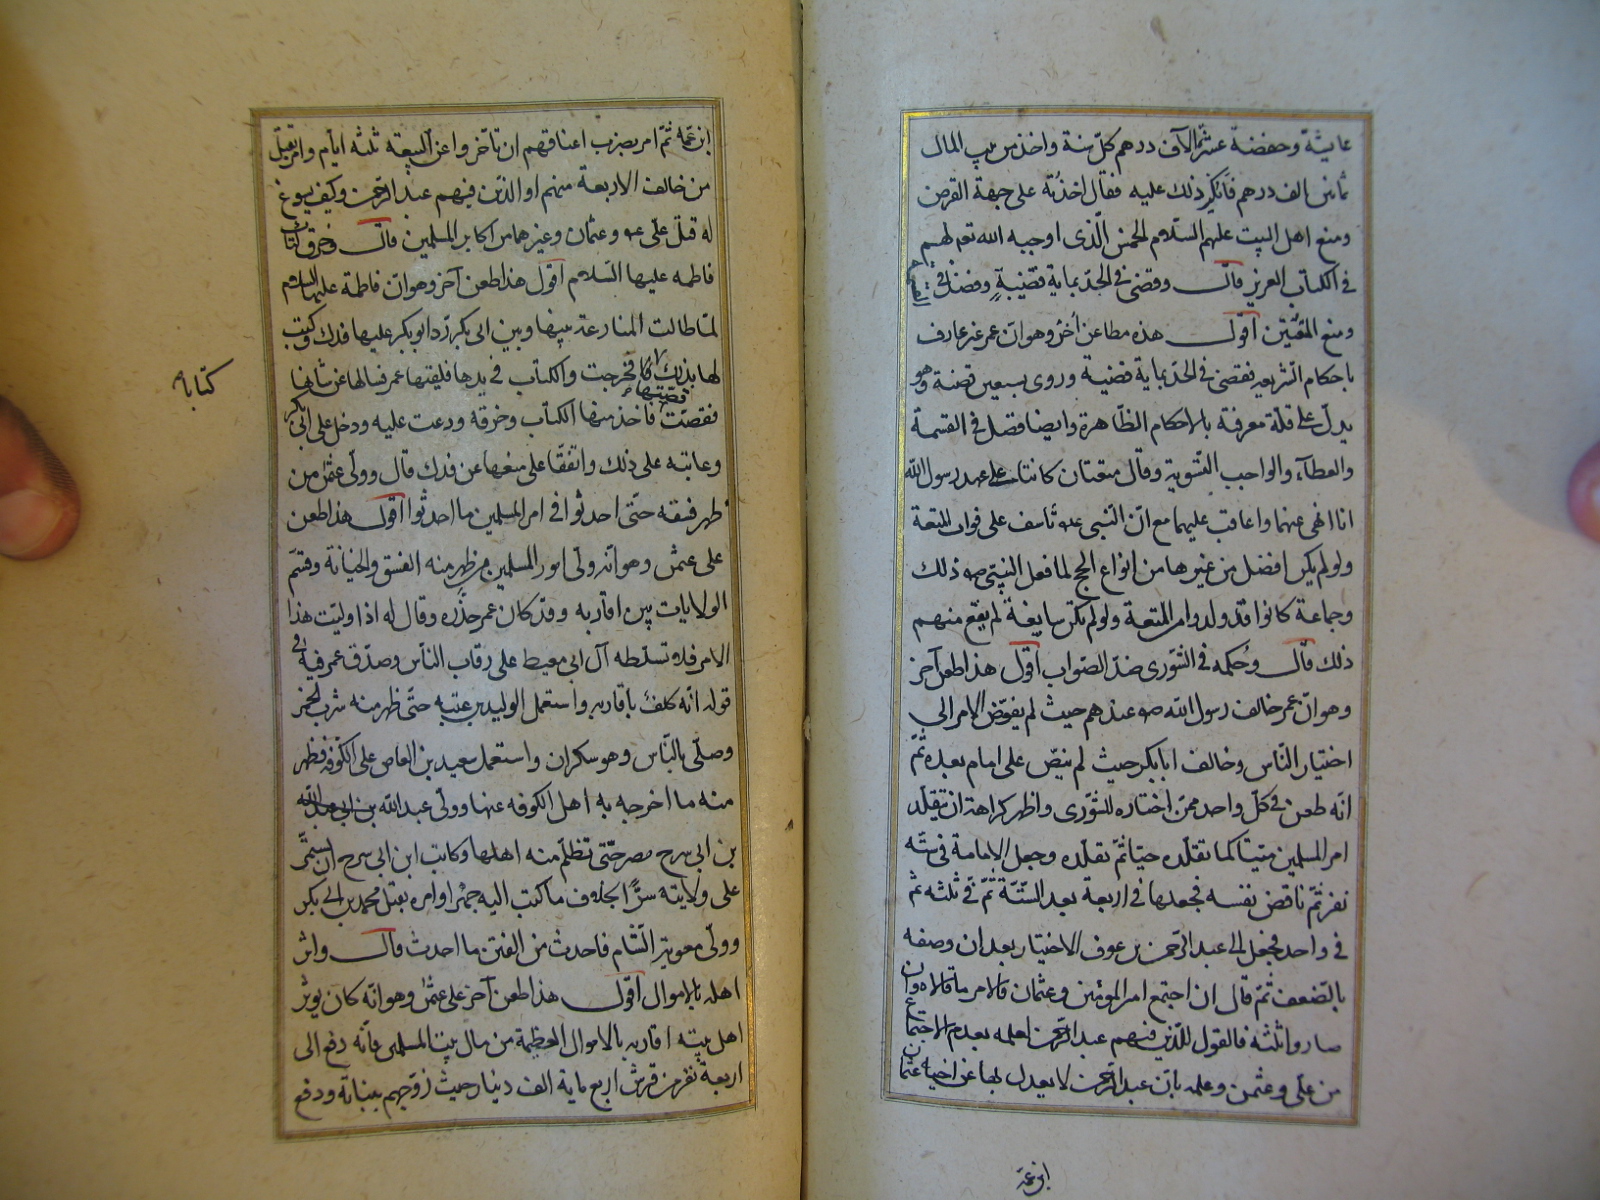 عايشة وحفصة عشرة آلاف درهم كل سنة واخذ من بيت المال
ثمانين الف درهم فانكر ذلك عليه فقال اخذته على جهة القرض
ومنع اهل البيت عليهم السلام الخمس الذى اوجبه الله تعم لهم
فى الكتاب العزيز قال وقضى فى الحد بماية قضيبة وفضل فى القسمة
ومنع المتعتين اقول هذه مطاعن أخر وهو ان عمر غير عارف
باحكام الشريعه فقضى فى الحد بماية قضية وروى بسبعين قضية وهو
يدل على قلة معرفة بالاحكام الظاهرة وايضا فضل فى القسمة
والعطاء والواجب التسوية وقال متعتان كانتا على عهد رسول الله
انا انهى عنهما واعاقب عليهما مع ان النبى تأسف على فوات المتعة
ولو لم يكن افضل من غيرها من انواع الحج لما فعل النبى صه ذلك
وجماعة كانوا قد ولدوا من المتعة ولو لم تكن سايغة لم يقع منهم
ذلك قال وحكمه فى الشورى ضد الصواب اقول هذا طعن آخر
وهو ان عمر خالف رسول الله صه عندهم حيث لم يفوض الامر الى
اختيار الناس وخالف ابا بكر حيث لم ينص على امام بعده ثم
انه طعن فى كل واحد ممن اختاره للشورى واظهر كراهة ان يتقلد
امر المسلمين ميتا كما تقلده حيا ثم تقلده وجعل الامامة فى ستة
نفر ثم ناقض نفسه فجعلها فى اربعة بعد الستة ثم فى ثلثه ثم
فى واحد فجعل الى عبد الرحمن بن عوف الاختيار بعد ان وصفه
بالضعف ثم قال ان اجتمع امير المؤمنين وعثمان فالامر ما قالاه وان
صاروا ثلثه فالقول للذين فيهم عبد الرحمن لعلمه بعدم الاجتماع
من على وعثمن وعلمه بان عبد الرحمن لا يعدل بها عن اخيه عثمان
ابن عمه
ابن عمه ثم امر بضرب اعناقهم ان تأخروا عن البيعة ثلثه ايام وامر بقتل
من خالف الاربعة منهم او الذين فيهم عبد الرحمن وكيف يسوغ
له قتل على عه وعثمان وغيرهما من اكابر المسلمين قال وخرق كتاب
فاطمه عليها السلام اقول هذا طعن آخر وهو ان فاطمة عليها السلام
لما طالت المنازعة بينها وبين ابى بكر رد ابو بكر عليها فدك وكتب
لها بذلك كتابا فخرجت والكتاب فى يدها فلقيها عمر فسالها عن شانها
فقصت قصتها فاخذ منها الكتاب وخرقه ودعت عليه ودخل على ابى بكر
وعاتبه على ذلك واتفقا على منعها عن فدك قال وولى عثمن من
ظهر فسقه حتى احدثوا فى امر المسلمين ما احدثوا اقول هذا طعن
على عثمن وهو انه ولى امور المسلمين من ظهر منه الفسق والخيانة وقسم
الولايات بين اقاربه وقد كان عمر حذره وقال له اذا وليت هذا
الامر فلا تسلطه آل ابى معيط على رقاب الناس وصدق عمر فيه فى
قوله انه كلف باقاربه واستعمل الوليد بن عتبه حتى ظهر منه شرب الخمر
وصلى بالناس وهو سكران واستعمل سعيد بن العاص على الكوفه فظهر
منه ما اخرجه به اهل الكوفه عنها وولى عبد الله
بن ابى سرح مصر حتى تظلم منه اهلها وكاتب ابن ابى سرح ان استمر
على ولايته سرا بخلاف ما كتب اليه جهرا وامره بقتل محمد بن ابى بكر
وولى معوية الشام فاحدث من الفتن ما احدث قال واثر
اهله بالاموال اقول هذا طعن آخر على عثمن وهو انه كان يوثر
اهل بيته اقاربه بالاموال العظيمة من مال بيت المسلمين فانه دفع الى
اربعة نفر من قريش اربع ماية الف دينار حيث زوجهم ببناته ودفع
كتابا